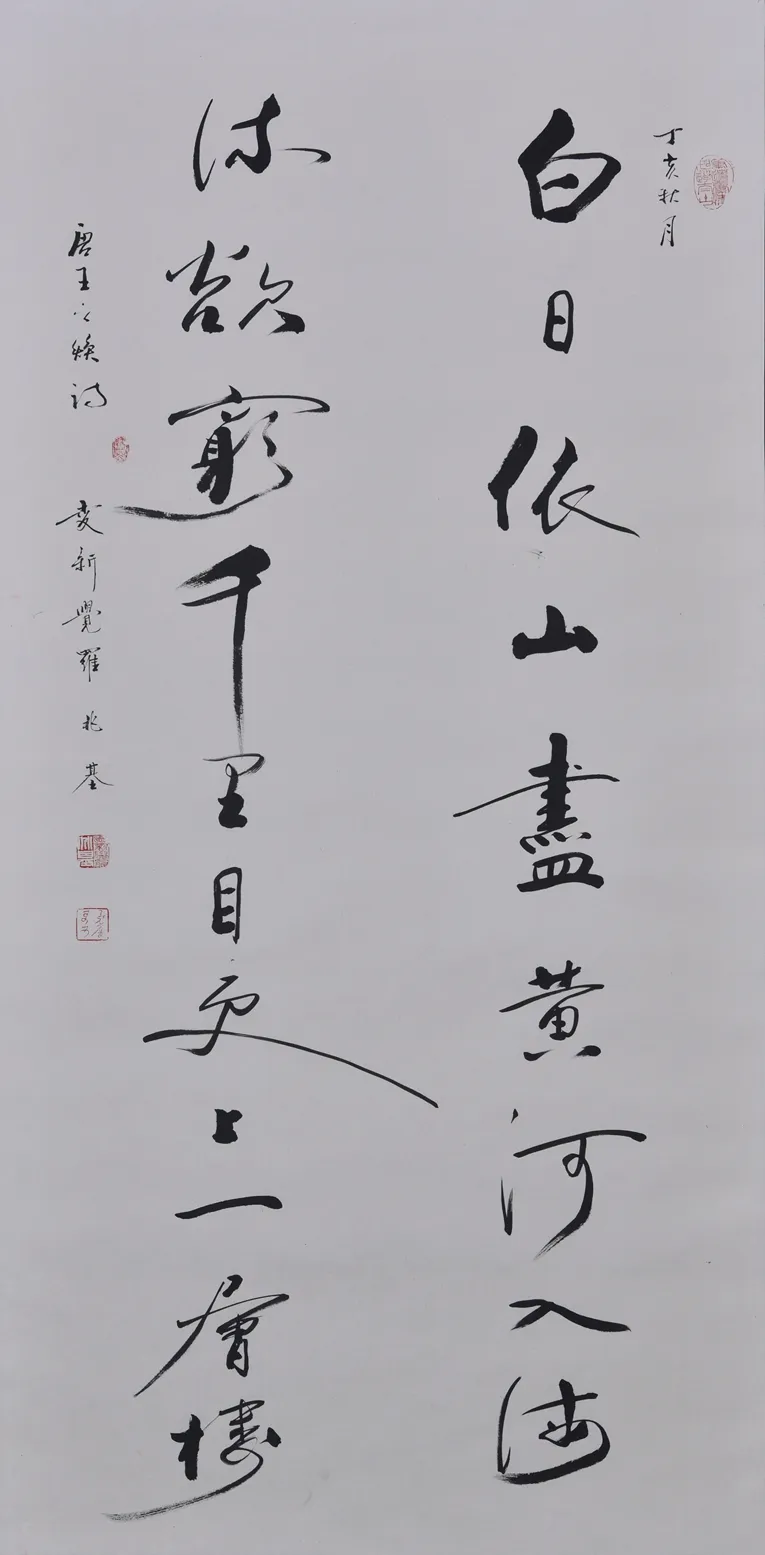 丁亥秋月
白日依山盡黄河入海
流欲窮千里目更上一層樓
唐王之煥诗
愛新覺羅兆基